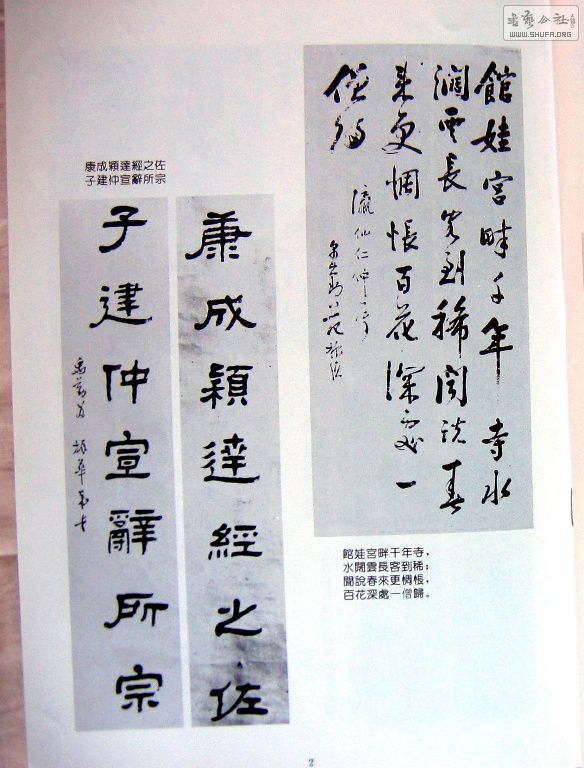 書藝公社
WWW.SHUFA.ORG
館娃宮畔千年寺水
濶雲長客到稀聞説春
來更惆悵百花深處一
僧歸
瀛仙仁仲
館娃宮畔千年寺，
水闊雲長客到稀；
聞說春來更惆悵，
百花深處一僧歸。
康成穎達經之佐
子建仲宣辭所宗
康成穎達經之佐
子建仲宣辭所宗
2